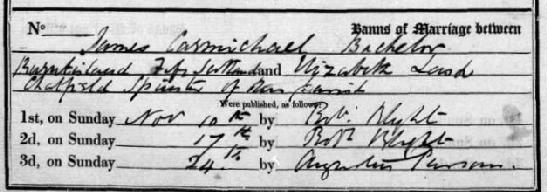 No Banns of Marriage between
James Carmichael Bachelor
Burntisland Fife Scotland and Elizabeth Land
Chatfield Spinster of
Were published, as follows:
1st, on Sunday Nov 10th by Robt Blight
2d, on Sunday 17th by Robt Blight
3d, on Sunday 24th by Augustus Parsons.